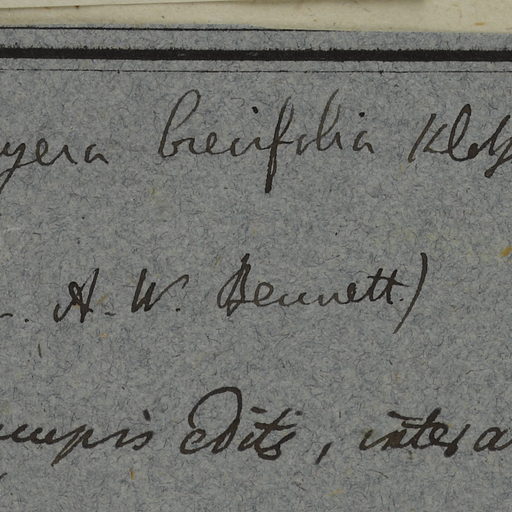 yera brevifolia Klotz
. A. W. Bennett.)
campis editis, inter a